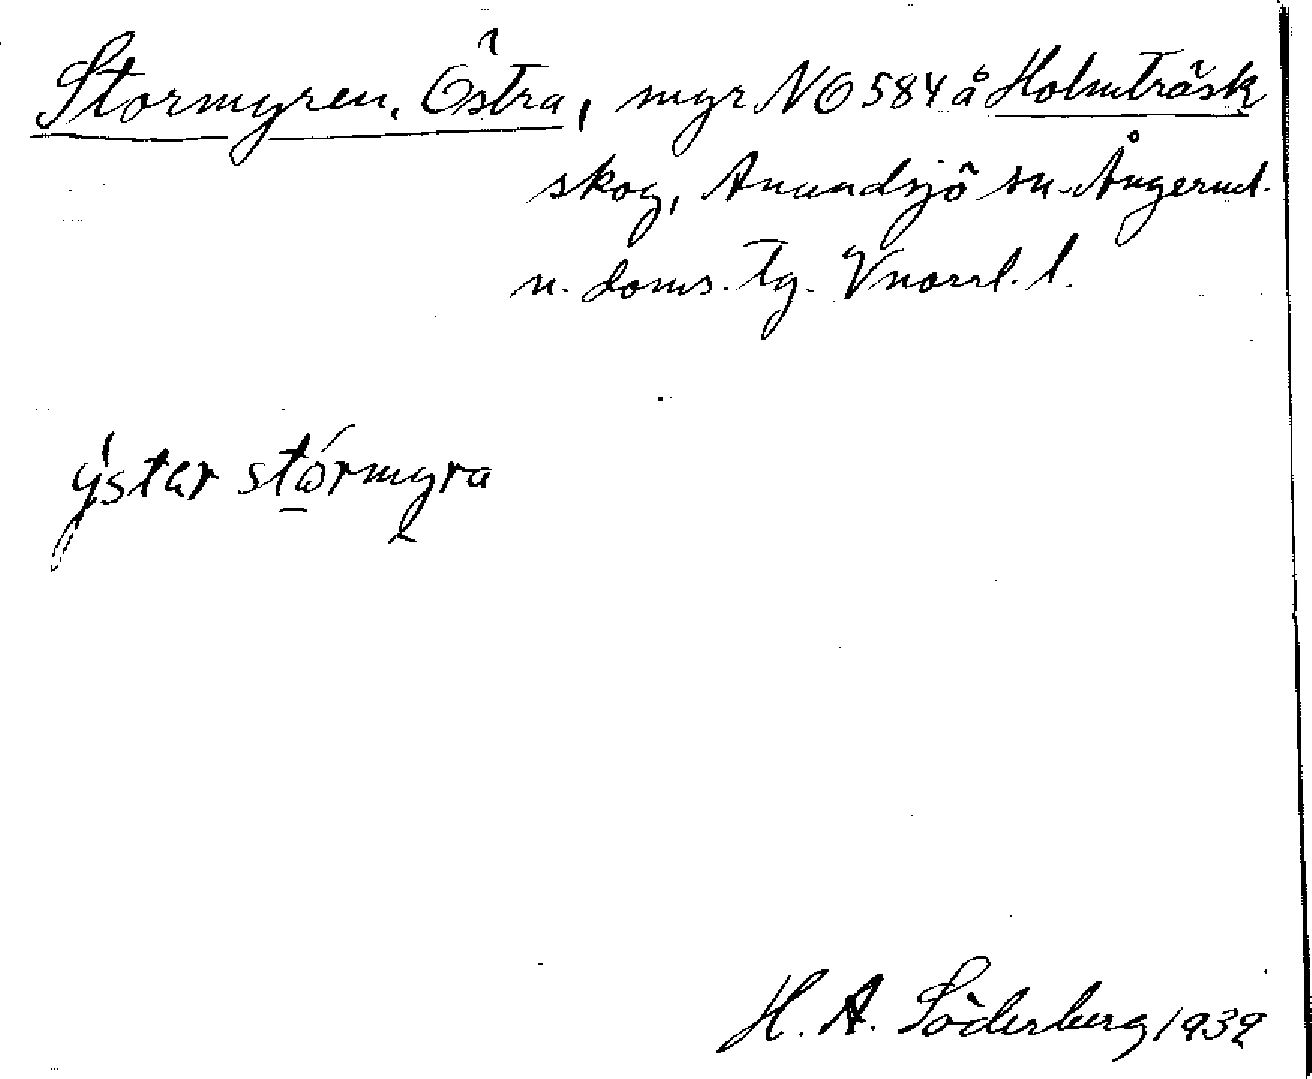 Stormyren, Östra, myr NO 584 å Holmträsk
skog, Anundsjö sn. Ångerml.
n. doms. Tg. Vnorrl. l.
ýstar stórmyra
H. A. Söderberg 1939